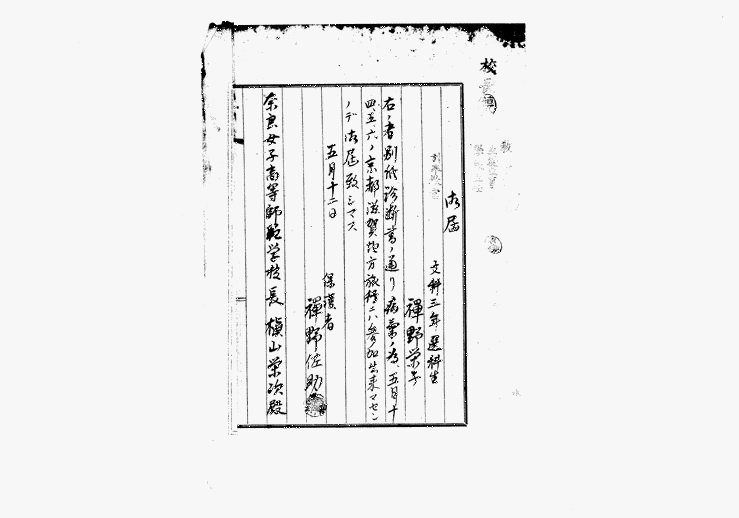 校長
御届
文科三年選科生
禪野栄子
右ノ者別紙診断書ノ通リノ病氣ノ為、五月十
四、五、六ノ京都滋賀地方旅行ニハ参加出来マセン
ノデ御届致シマス
五月十二日
保護者
禪野佐助
奈良女子高等師範学校長 槇山栄次殿